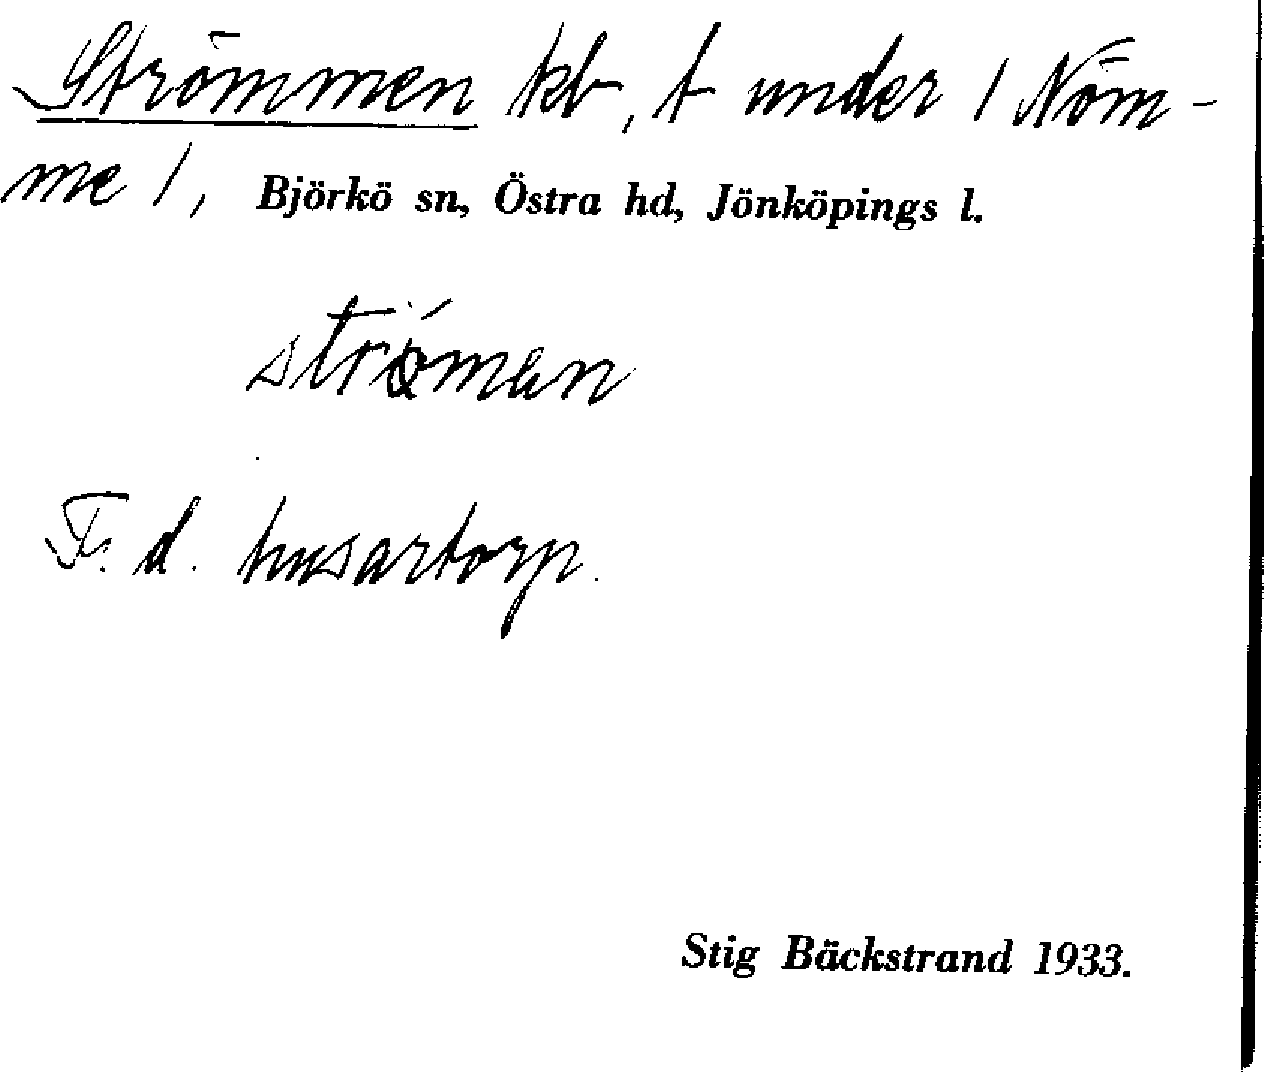 Strömmen kb, t under / Nöm-
me /, Björkö sn, Östra hd, Jönköpings l.
strö́mən
F. d. husartorp.
Stig Bäckstrand 1933.